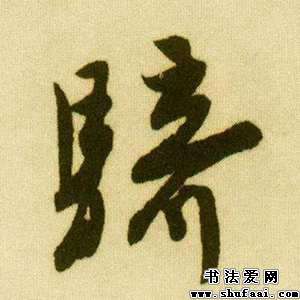 驕
书法爱网
www.shufaai.com